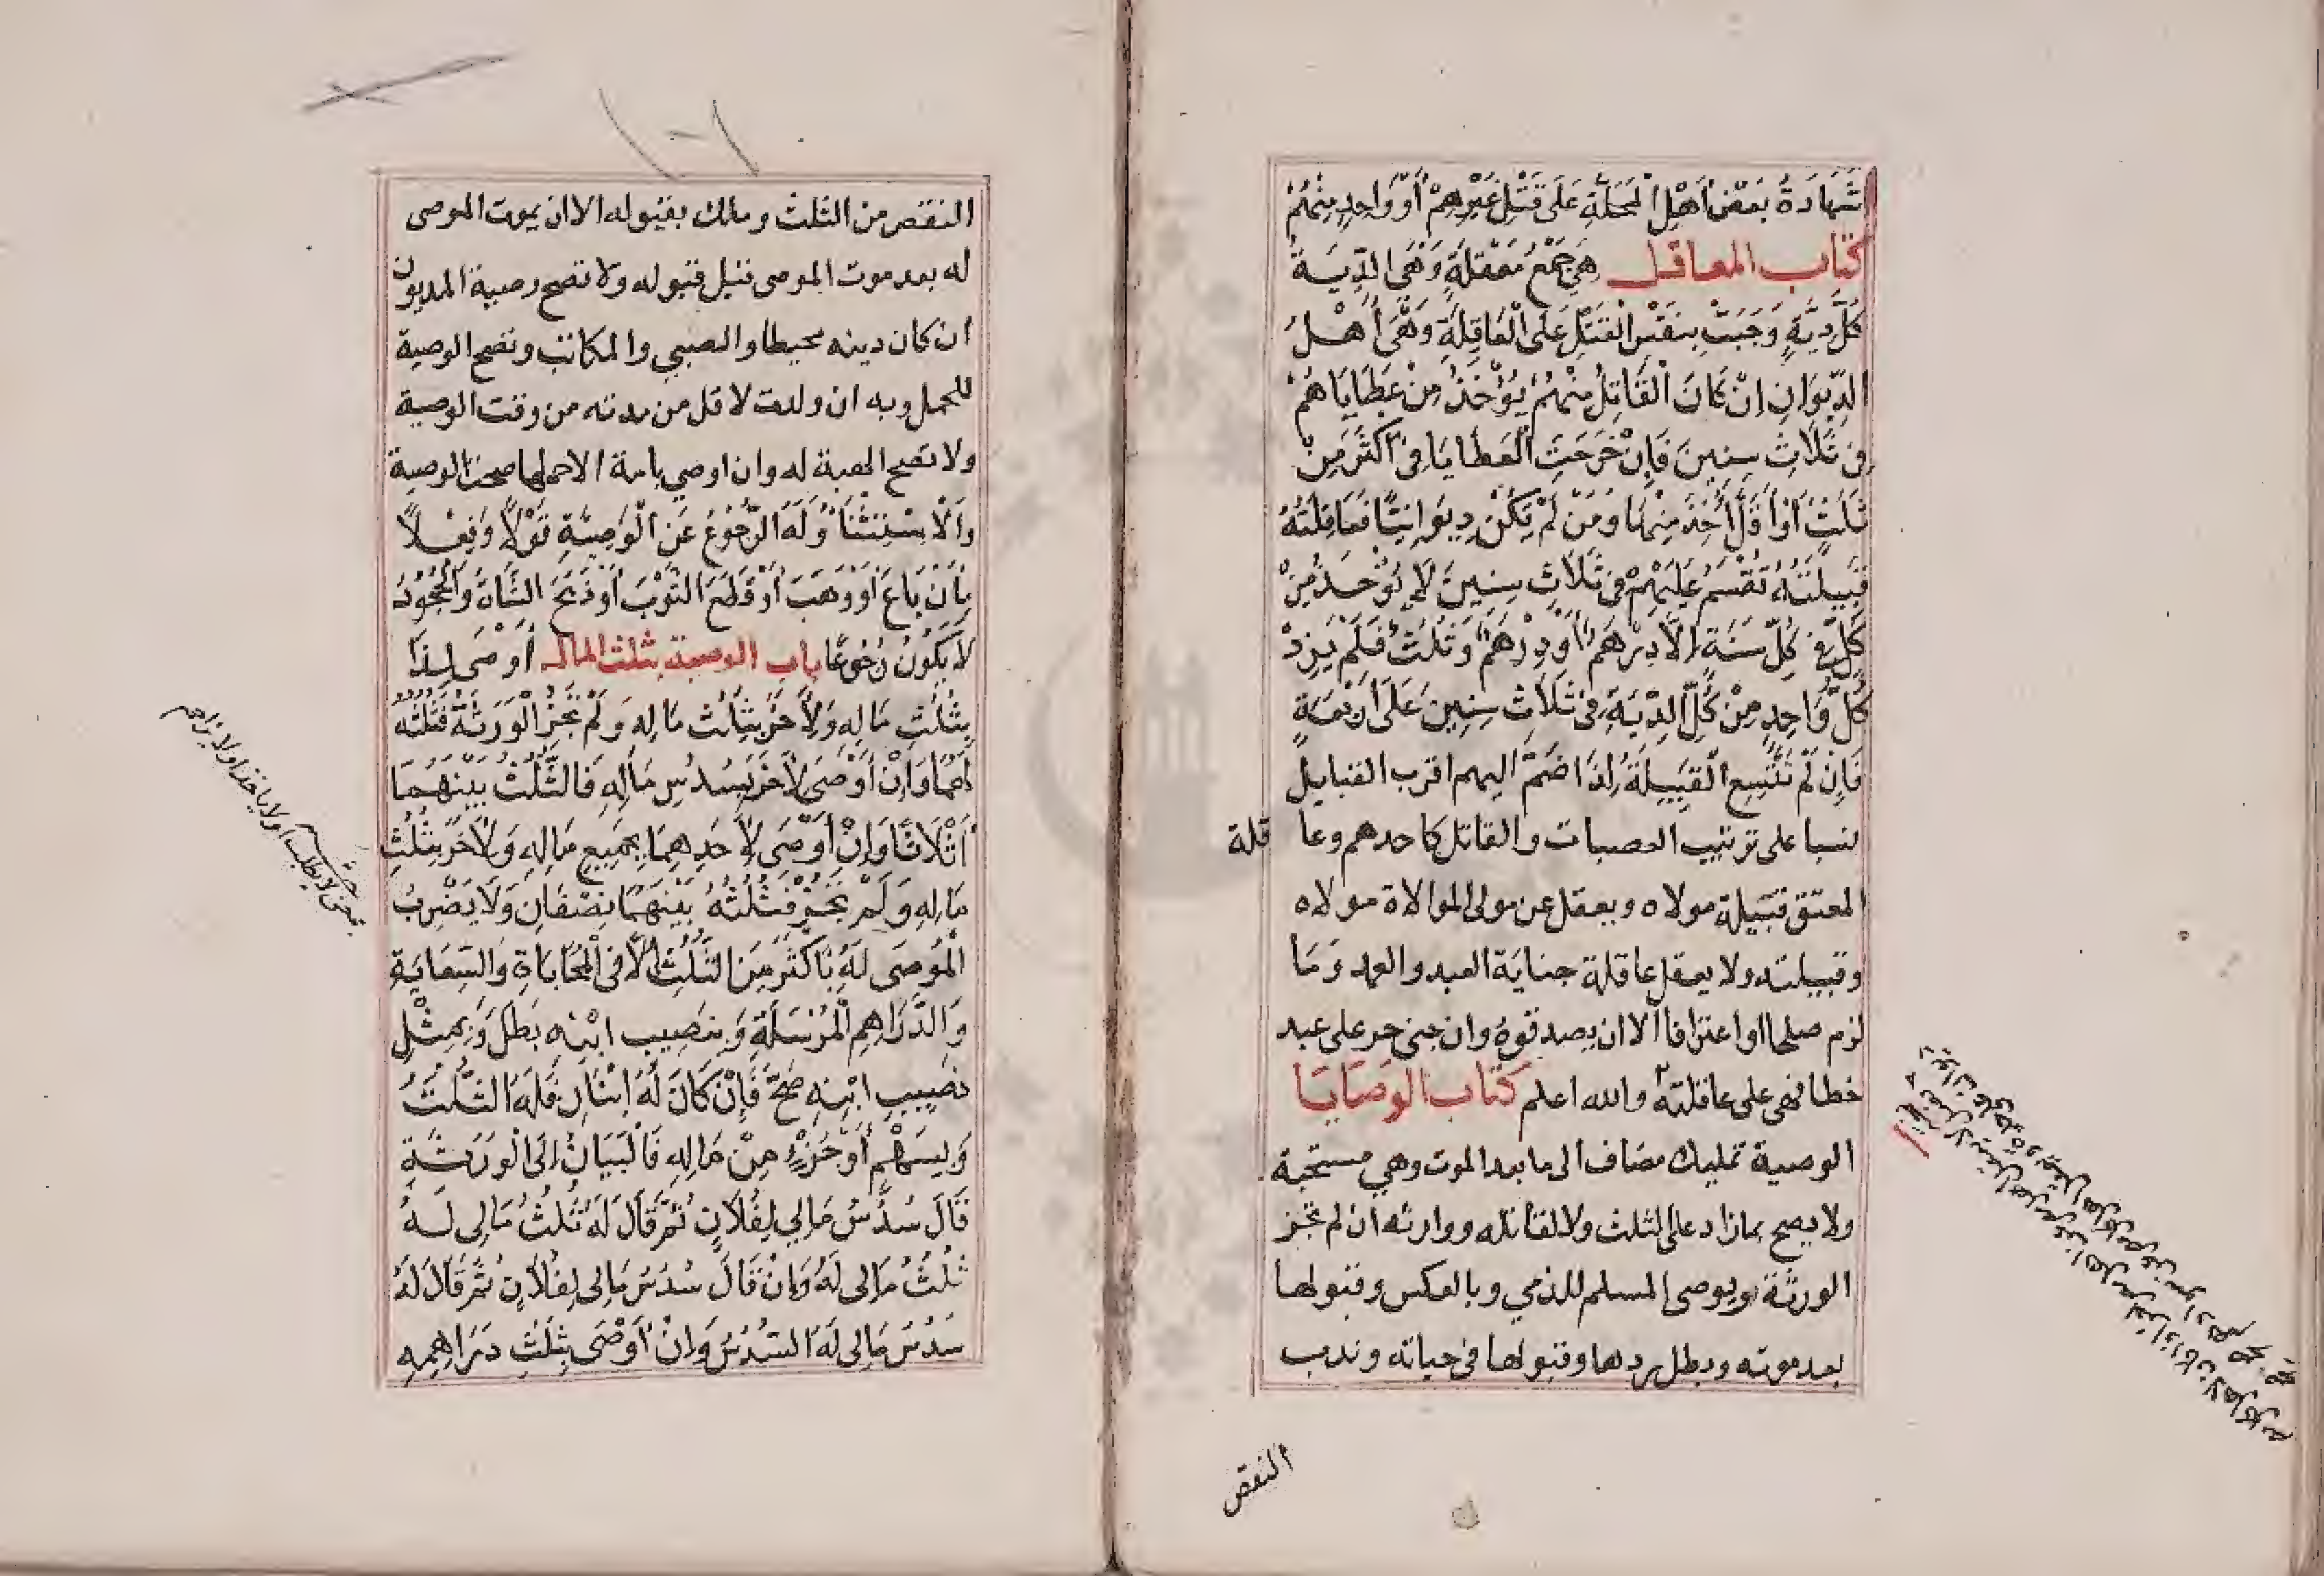 شَهَادَةُ بَعْضِ أَهْلِ الْمَحَلَّةِ عَلَى قَتْلِ غَيْرِهِمْ أَوْ وَاحِدٍ مِنْهُمْ
كتاب المعاقل هِيَ جَمْعُ مَعْقُلَةٍ وَهْىَ الدِّيَةُ
كُلُّ دِيَّةٍ وَجَبَتْ بِنَفْسِ الْقَتْلِ عَلَى الْعَاقِلَةِ وَهْىَ أَهْلُ
الدِّيوَانِ اِنْ كَانَ الْقَاتِلُ مِنْهُمْ يُؤْخَذُ مِنْ عَطَايَاهُمْ
فِى ثَلَاثِ سِنِينَ فَاِنْ خَرَجَتِ الْعَطَايَا فِى اَكْثَرَ مِنْ
ثَلَثٍ اَوْ أَقَلَّ أُخِذَ مِنْهَا وَمَنْ لَمْ يَكُنْ دِيوَانِيًّا فَعَاقِلَتُهُ
قَبِيلَتُهُ تُقْسَمُ عَلَيْهِمْ فِى ثَلَاثِ سِنِينَ لَا يُؤْخَدُ مِنْ
كُلٍّ فِى كُلِّ سَنَةٍ اِلَّا دِرْهَمٌ أَوْ دِرْهَمٌ وَثُلُثٌ فَلَمْ يَزِدْ
كُلُّ وَاحِدٍ مِنْ كُلِّ الدِّيَةِ فِى ثَلَاثِ سِنِينَ عَلَى أَرْبَعَةٍ
فَاِنْ لَمْ تَتَّسِعِ الْقَبِيلَةُ لِذَا ضَمَّ اليهم اقرب القبايل
نسبا على ترتيب العصبات والقاتل كاحدهم وعا قلة
المعتق قبيلة مولاه ويعقل عن مولى الموالاة مولاه
وقبيلته ولا يعقل عاقلة جناية العبد والعمد وَمَا
لزم صلحا اوا عترافا الا ان يصدقوهُ وان جنى حر على عبد
خطا فهى على عاقلته والله اعلم كتاب الوصَايَا
الوصية تمليك مضاف الى ما بعد الموت وهي مستحبة
ولا يصح بما زاد على الثلث ولا لقاتله ووارثه ان لم تجز
الورثة ويوصى المسلم للذمي وبالعكس وقبولها
بعد موته وبطل ردها وقبولها فى حياته وندب
النقص
النقص من الثلث وملك بقبوله الا ان يموت الموصى
له بعد موت الموصى قبل قبوله ولا تصح وصية المديون
ان كان دينه محيطا والصبي والمكاتب وتصح الوصية
للحمل وبه ان ولدت لاقل من مدته من وقت الوصية
ولا تصح الهبة له وان اوصي بامة الا حملها صحت الوصية
وَالْاِسْتِثْنَا وَلَهُ الرُّجُوعُ عَنِ الْوَصِيَّةِ قَوْلًا وَفِعْلًا
بِأَنْ بَاعَ أَوْ وَهَبَ أَوْ قَطَعَ الثَّوْبَ أَوْ ذَبَحَ الشَّاةَ وَالْجُحُودُ
لَا يَكُونُ رُجُوعًا باب الوصية بثلث المال أَوْصَى لِذَا
بِثُلُثِ مَالِهِ وَلِأَخَرَ بِثُلُثِ مَالِهِ وَلَمْ تُجِزْ الْوَرَثَةُ فَثُلُثُهُ
لَهُمَا وَاِنْ أَوْصَى لِأَخَرَ بِسُدُسِ مَالِهِ فَالثُّلُثُ بَيْنَهُمَا
أَثْلَاثًا وَاِنْ أَوْصَى لِأَحَدِهِمَا بِجَمِيعِ مَالِهِ وَلِأَخَرَ بِثُلُثِ
مَالِهِ وَلَمْ تُجِزْ فَثُلُثُهُ بَيْنَهُمَا نِصْفَانِ وَلَا يَضْرِبُ
الْمُوصَى لَهُ بِأَكْثَرَ مِنَ الثُّلُثِ اِلَّا فِى الْمُحَابَاةِ وَالسِّعَايَةِ
وَالدَّرَاهِمِ الْمُرْسَلَةِ وَبِنَصِيبِ ابْنِهِ بَطَلَ وَبِمِثْلِ
نَصِيبِ ابْنِهِ صَحَّ فَإِنْ كَانَ لَهُ ابْنَانِ فَلَهُ الثُّلُثُ
وَبِسَهْمٍ أَوْ جُزْءٍ مِنْ مَالِهِ فَالْبَيَانُ اِلَى الْوَرَثَةِ
قَالَ سُدُسُ مَالِي لِفُلَانٍ ثُمَّ قَالَ لَهُ ثُلُثُ مَالِى لَهُ
ثُلُثُ مَالِى لَهُ وَاِنْ قَالَ سُدُسُ مَالِى لِفُلَانٍ ثُمَّ قَالَ لَهُ
سُدُسُ مَالِى لَهُ السُّدُسُ وَاِنْ أَوْصَى بِثُلُثِ دَرَاهِمِهِ